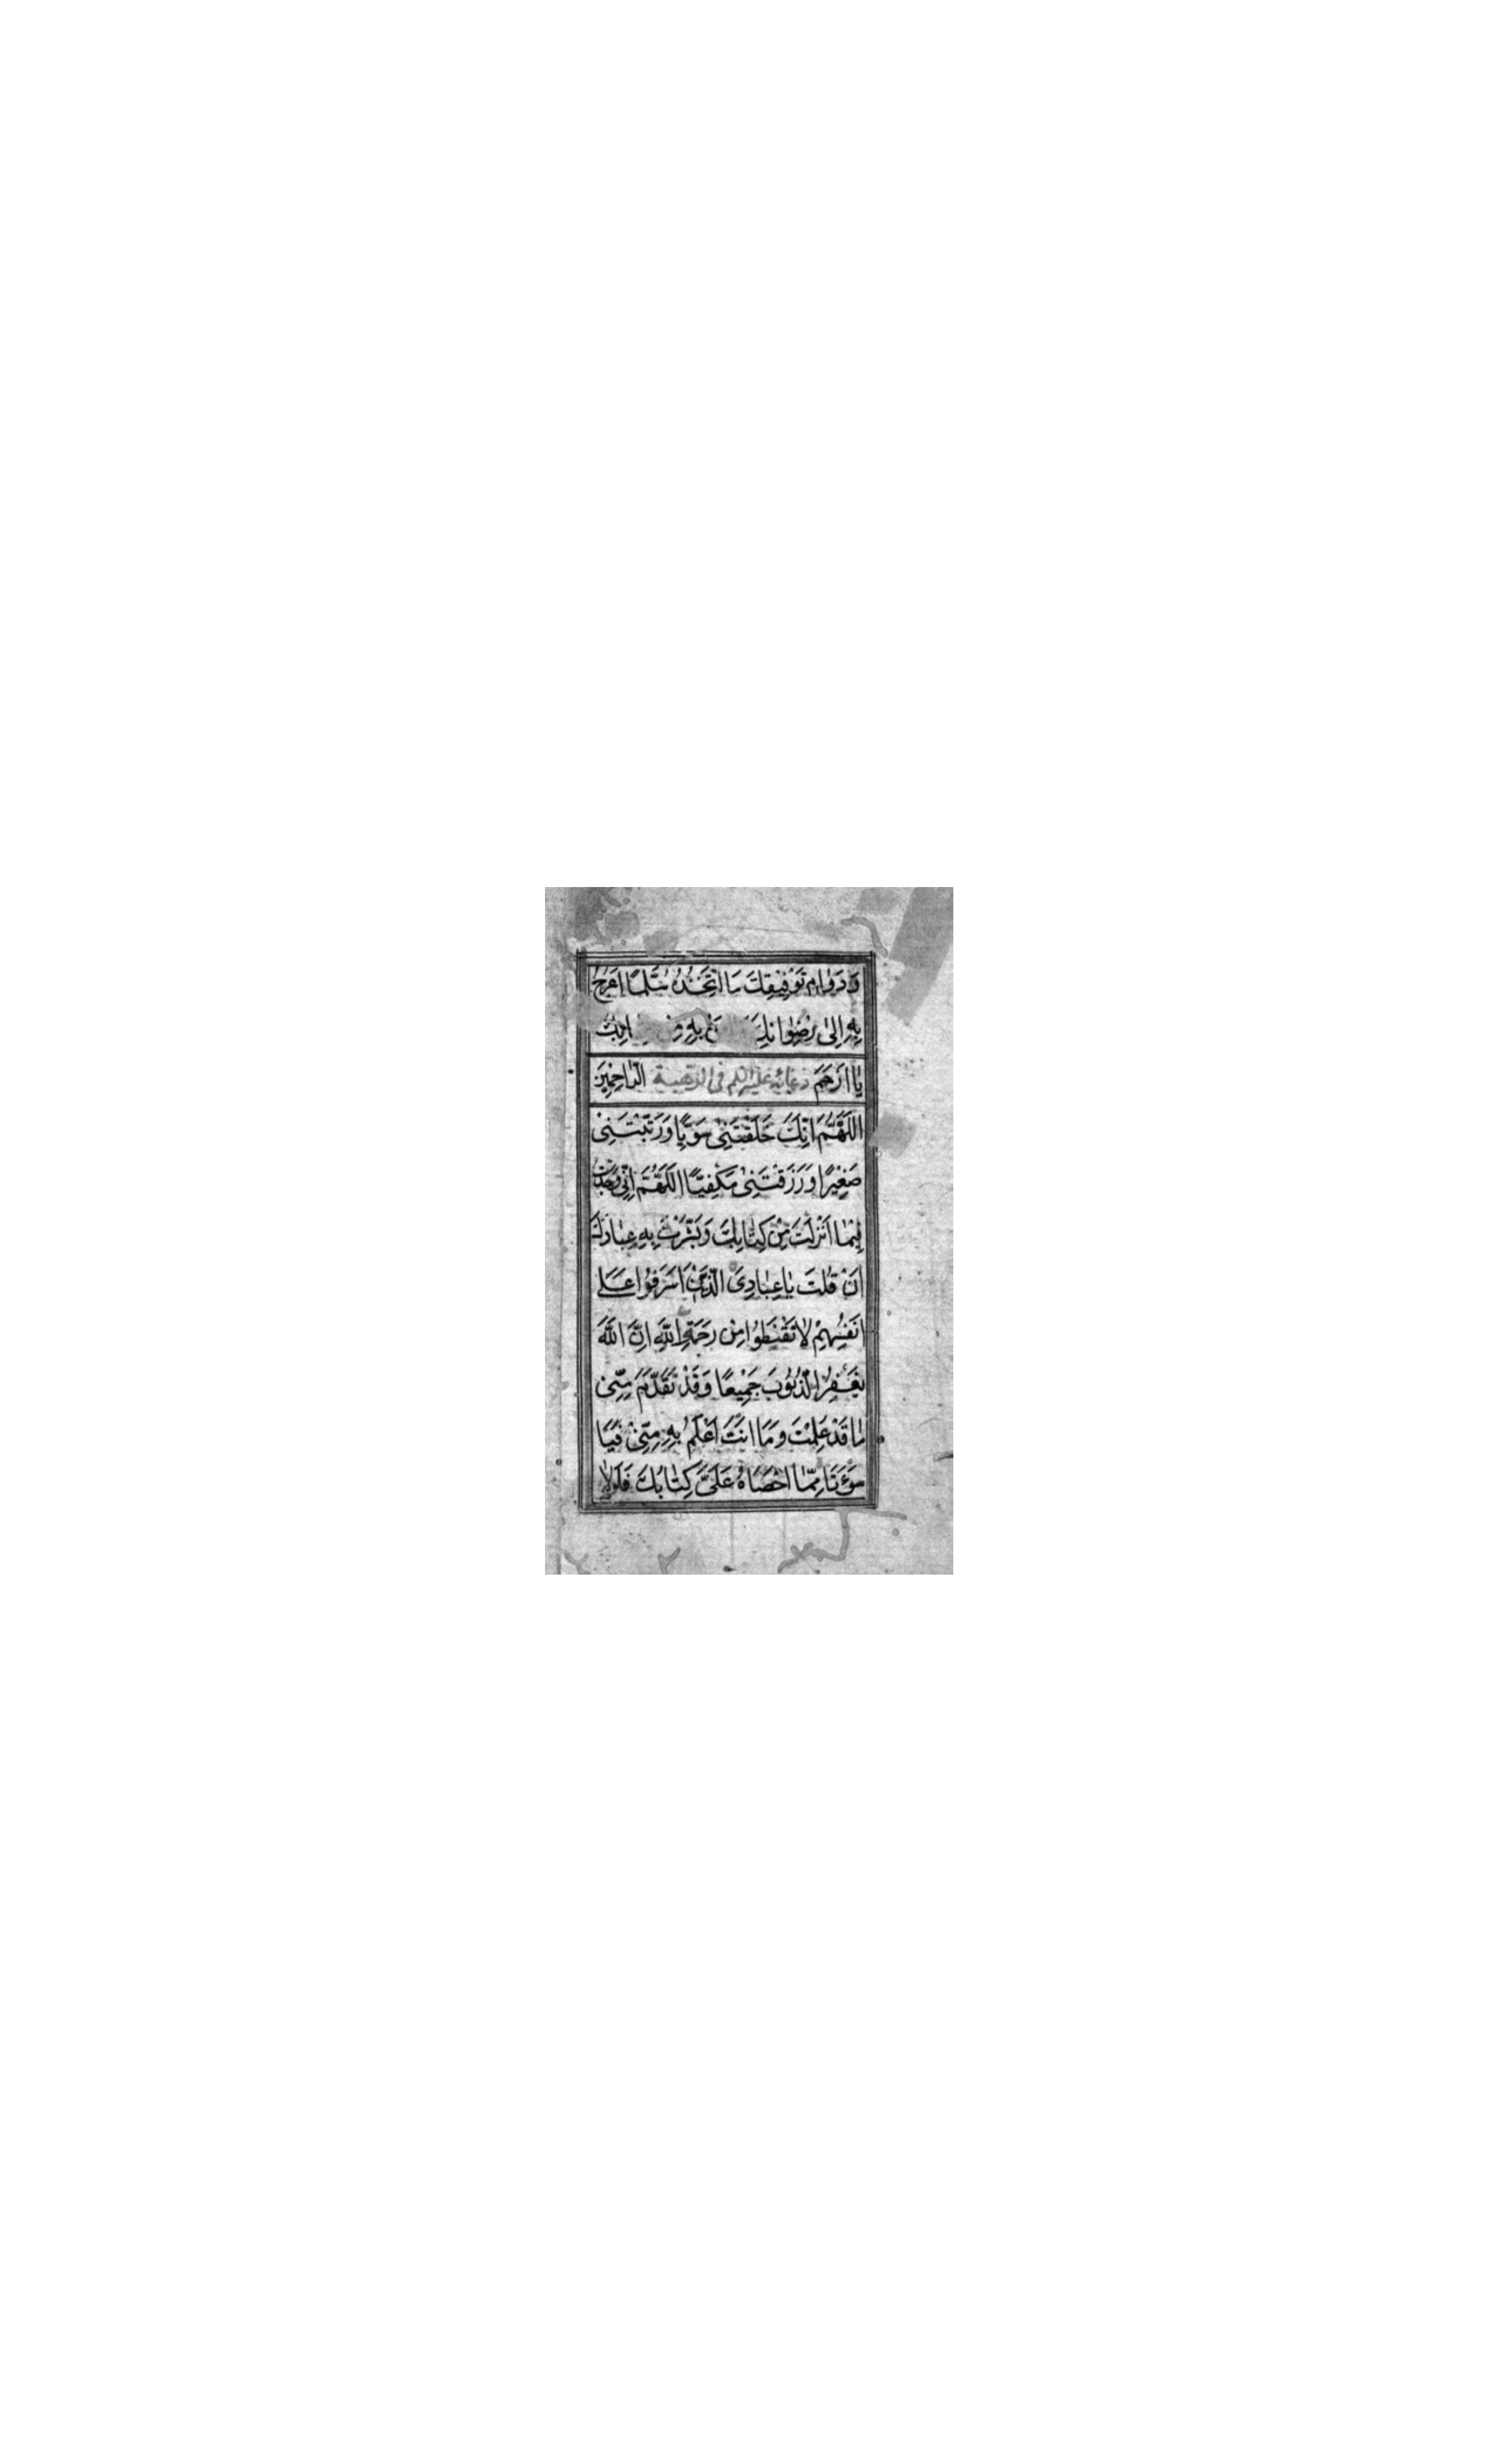 وَدَوَامِ تَوْفِيقِكَ مَا اَتَّخِذُهُ سُلَّمًا اَعْرُجُ
بِهِ اِلٰى رِضْوَانِكَ بِهِ
يٰا اَرْحَمَ دعائه عليه السلم فى الرهبة الرّٰاحِمِينَ
اَللّٰهُمَّ اِنَّكَ خَلَقْتَنِىْ سَوِيًّا وَرَبَّيْتَنِىْ
صَغِيْرًا وَرَزَقْتَنِىْ مَكْفِيًّا اَللّٰهُمَّ اِنِّى وَجَدْتُ
فِيْمٰا اَنْزَلْتَ مِنْ كِتٰابِكَ وَبَشَّرْتَ بِهِ عِبٰادَكَ
اَنْ قُلْتَ يٰا عِبٰادِىَ الَّذِيْنَ اَسْرَفُوْا عَلٰى
اَنْفُسِهِمْ لاٰ تَقْنَطُوْا مِنْ رَحْمَةِ اللّٰهِ اِنَّ اللّٰهَ
يَغْفِرُ الذُّنُوْبَ جَمِيْعًا وَقَدْ تَقَدَّمَ مِنِّىْ
مٰا قَدْ عَلِمْتَ وَمَا اَنْتَ اَعْلَمُ بِهِ مِنِّىْ فَيٰا
سَوْءَتَا مِمّٰا اَحْصَاهُ عَلَىَّ كِتٰابُكَ فَلَوْلاٰ